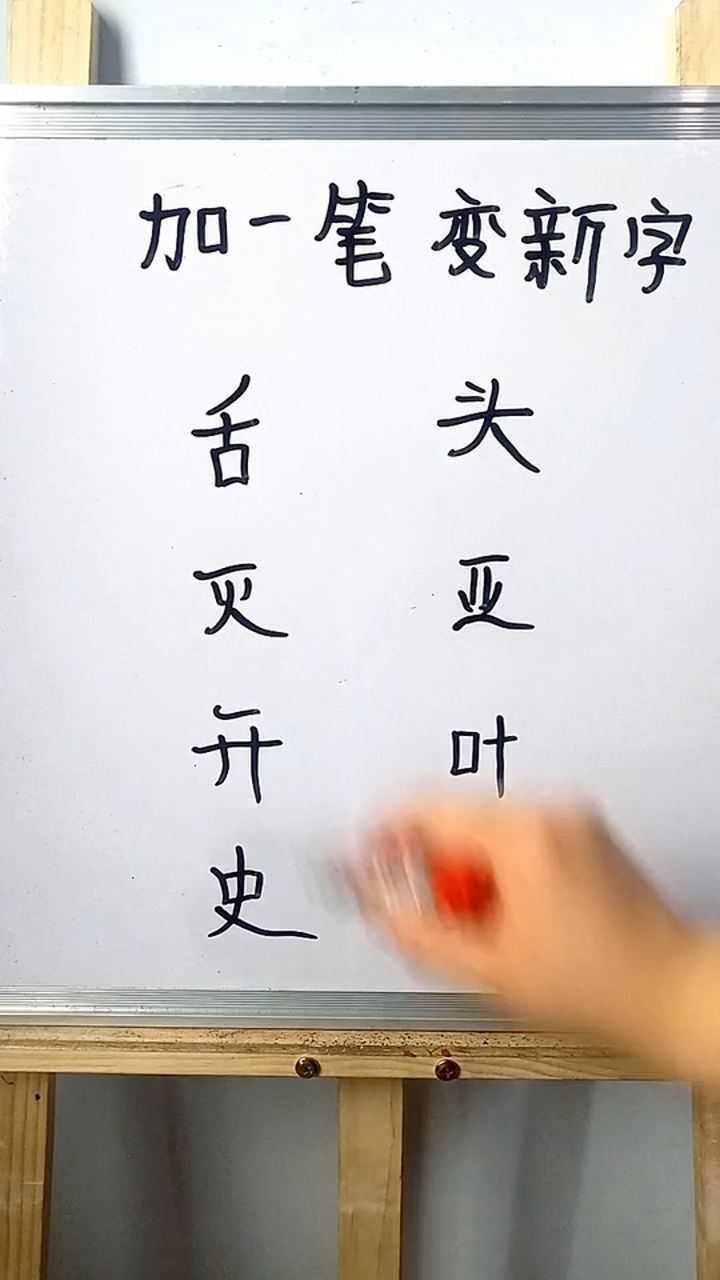 加一笔 变新字
舌 头
灭 亚
开 叶
史